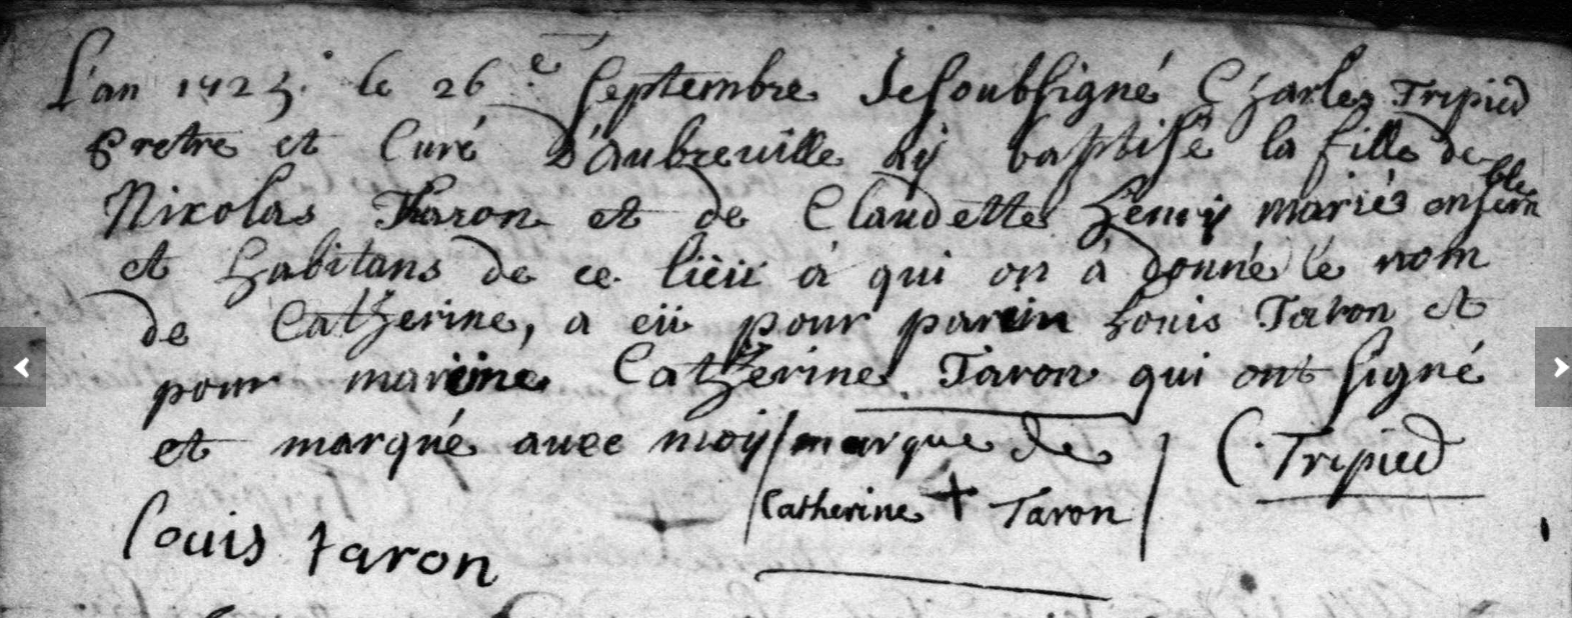 L'an 1723. le 26e Septembre Je soubsigné Charles Tripied
Pretre et Curé D'aubreuille ay baptisé la fille de
Nikolas Tharon et de Claudette henry mariés ensemble
et habitans de ce lieu à qui on à donné le nom
de Catherine, a eü pour parein Louis Taron et
pour mareine Catherine Taron qui ont signé
et marqué avec moy / marque de
Catherine + Taron
C. Tripied
Louis taron